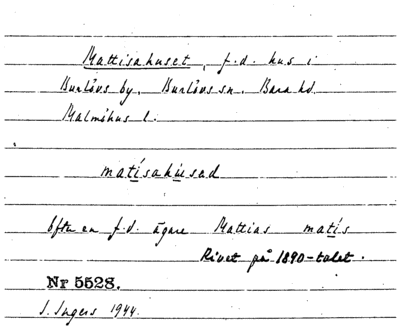 Mattisahuset, f.d. hus i
Burlövs by, Burlövs sn. Bara hd.
Malmöhus l.
matisahusad
Efter en f.d. ägare Mattias matis
Rivet på 1890-talet.
Nr 5528.
I. Ingers 1944.